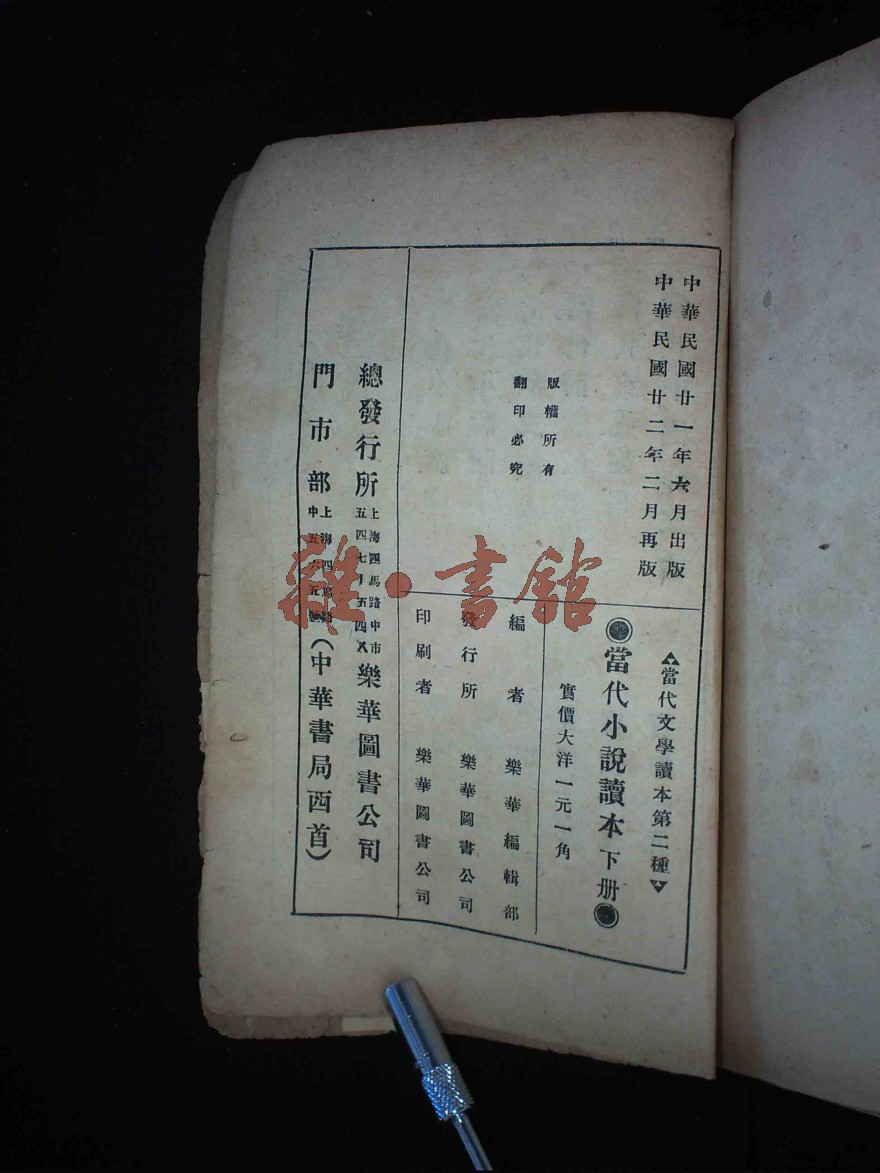 中華民國廿一年六月出版
中華民國廿二年二月再版
版權所有
翻印必究
▲當代文學讀本第二種▼
◉當代小說讀本下册◉
實價大洋一元一角
編者 樂華編輯部
發行所 樂華圖書公司
印刷者 樂華圖書公司
總發行所 上海四馬路中市 樂華圖書公司
門市部 上海四馬路 (中華書局西首)
雜·書館